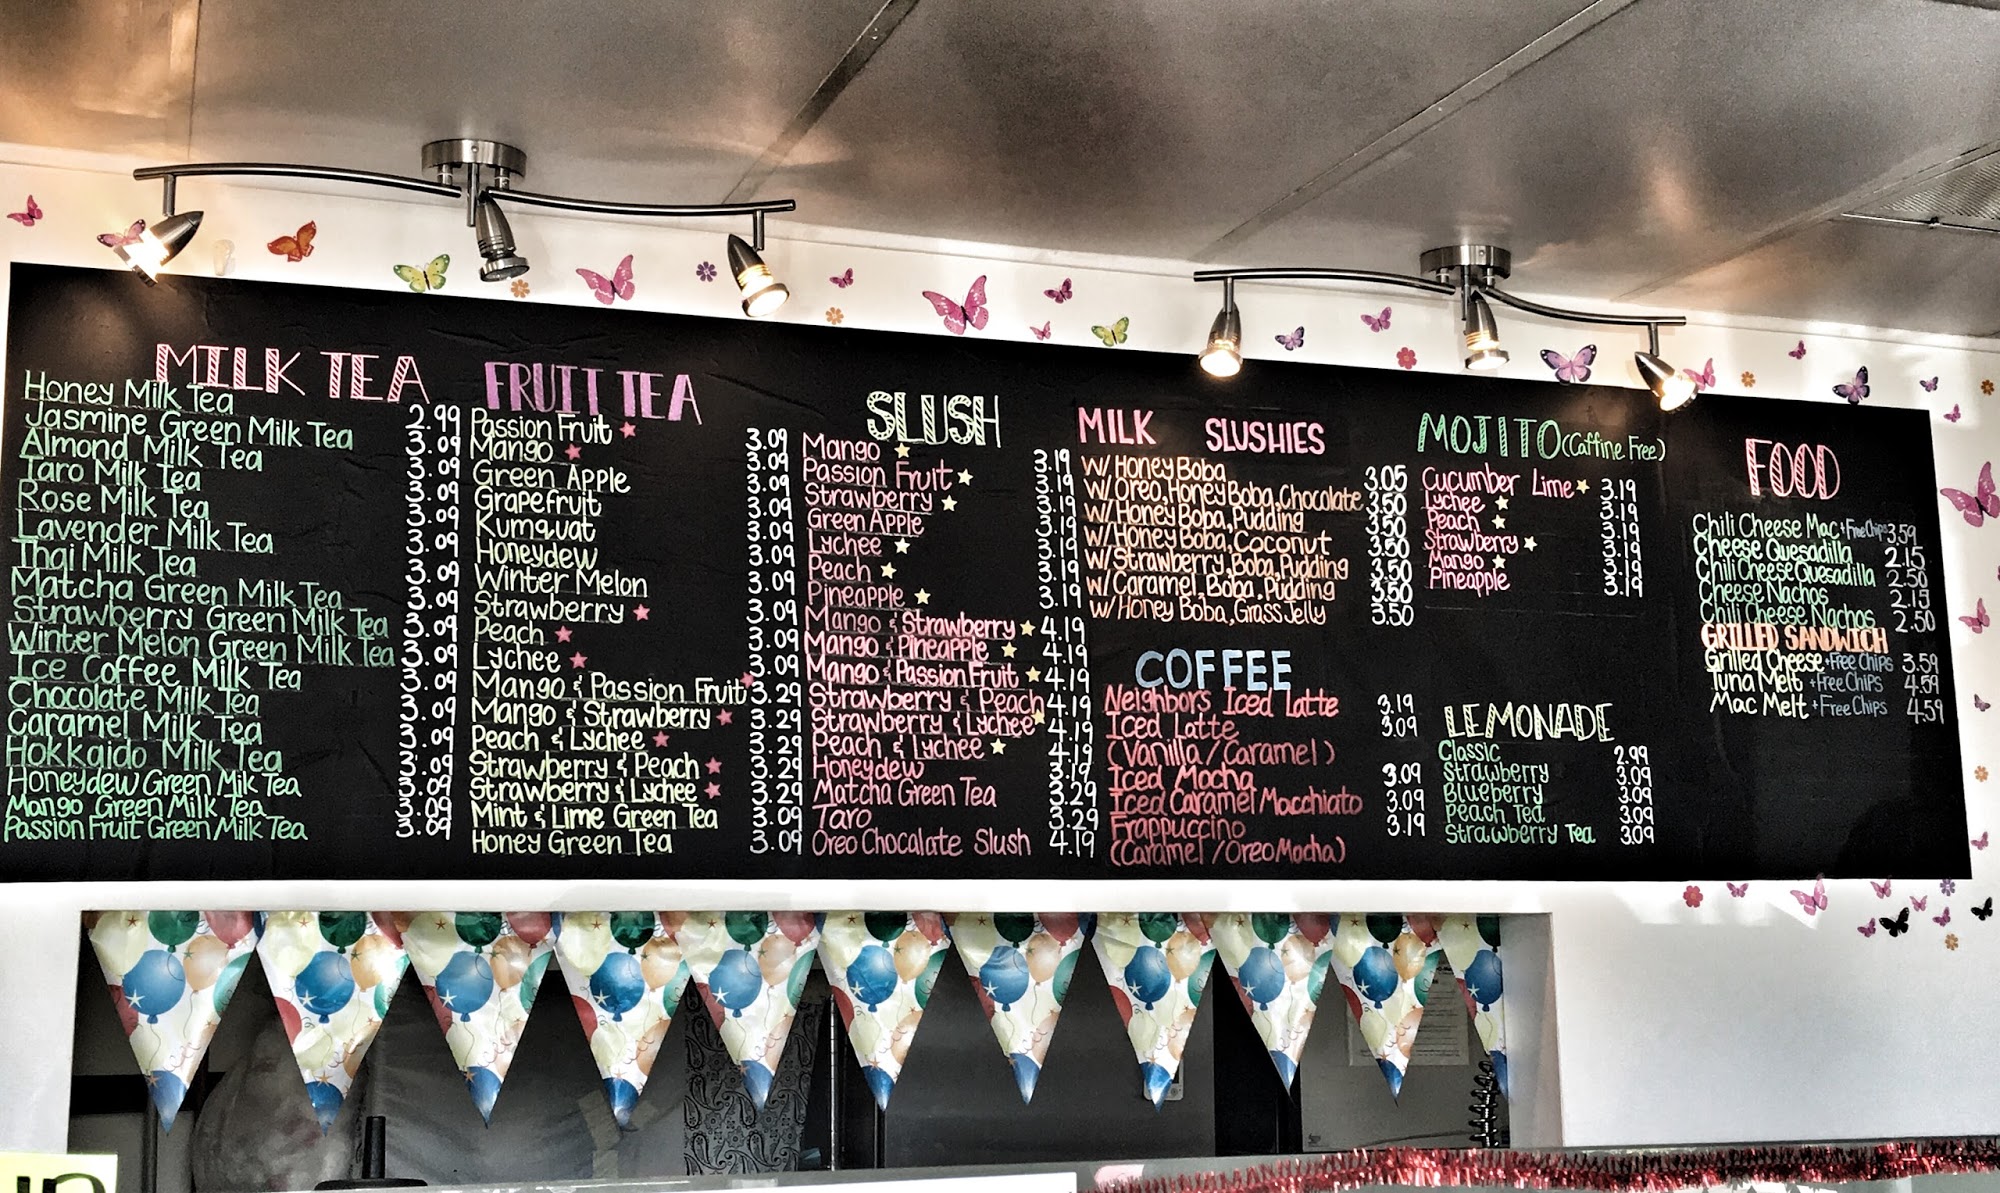 MILK TEA
Honey Milk Tea 2.99
Jasmine Green Milk Tea 3.09
Almond Milk Tea 3.09
Taro Milk Tea 3.09
Rose Milk Tea 3.09
Lavender Milk Tea 3.09
Thai Milk Tea 3.09
Matcha Green Milk Tea 3.09
Strawberry Green Milk Tea 3.09
Winter Melon Green Milk Tea 3.09
Ice Coffee Milk Tea 3.09
Chocolate Milk Tea 3.09
Caramel Milk Tea 3.09
Hokkaido Milk Tea 3.09
Honeydew Green Milk Tea 3.09
Mango Green Milk Tea 3.09
Passion Fruit Green Milk Tea 3.09
FRUIT TEA
Passion Fruit 3.09
Mango 3.09
Green Apple 3.09
Grapefruit 3.09
Kumquat 3.09
Honeydew 3.09
Winter Melon 3.09
Strawberry 3.09
Peach 3.09
Lychee 3.09
Mango & Passion Fruit 3.29
Mango & Strawberry 3.29
Peach & Lychee 3.29
Strawberry & Peach 3.29
Strawberry & Lychee 3.29
Mint & Lime Green Tea 3.09
Honey Green Tea 3.09
SLUSH
Mango 3.19
Passion Fruit 3.19
Strawberry 3.19
Green Apple 3.19
Lychee 3.19
Peach 3.19
Pineapple 3.19
Mango & Strawberry 4.19
Mango & Pineapple 4.19
Mango & Passion Fruit 4.19
Strawberry & Peach 4.19
Strawberry & Lychee 4.19
Peach & Lychee 4.19
Honeydew 3.19
Matcha Green Tea 3.29
Taro 3.29
Oreo Chocolate Slush 4.19
MILK SLUSHIES
w/ Honey Boba 3.05
w/ Oreo, Honey Boba, Chocolate 3.50
w/ Honey Boba, Pudding 3.50
w/ Honey Boba, Coconut 3.50
w/ Strawberry, Boba, Pudding 3.50
w/ Caramel, Boba, Pudding 3.50
w/ Honey Boba, Grass Jelly 3.50
COFFEE
Neighbors Iced Latte 3.19
Iced Latte 3.09
(Vanilla / Caramel)
Iced Mocha 3.09
Iced Caramel Macchiato 3.09
Frappuccino 3.19
(Caramel / Oreo Mocha)
MOJITO (Caffine Free)
Cucumber Lime 3.19
Lychee 3.19
Peach 3.19
Strawberry 3.19
Mango 3.19
Pineapple 3.19
LEMONADE
Classic 2.99
Strawberry 3.09
Blueberry 3.09
Peach Tea 3.09
Strawberry Tea 3.09
FOOD
Chili Cheese Mac + Free Chips 3.59
Cheese Quesadilla 2.15
Chili Cheese Quesadilla 2.50
Cheese Nachos 2.15
Chili Cheese Nachos 2.50
GRILLED SANDWICH
Grilled Cheese + Free Chips 3.59
Tuna Melt + Free Chips 4.59
Mac Melt + Free Chips 4.59